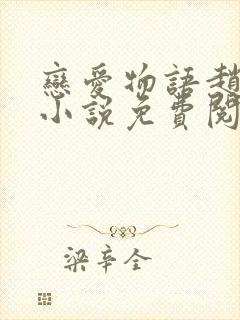 戀愛物語趙
小說免費閱
梁辛全